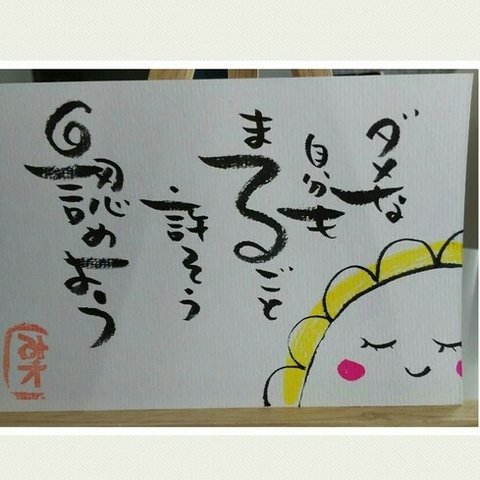 ダメな
自分も
まるごと
許そう
認めよう